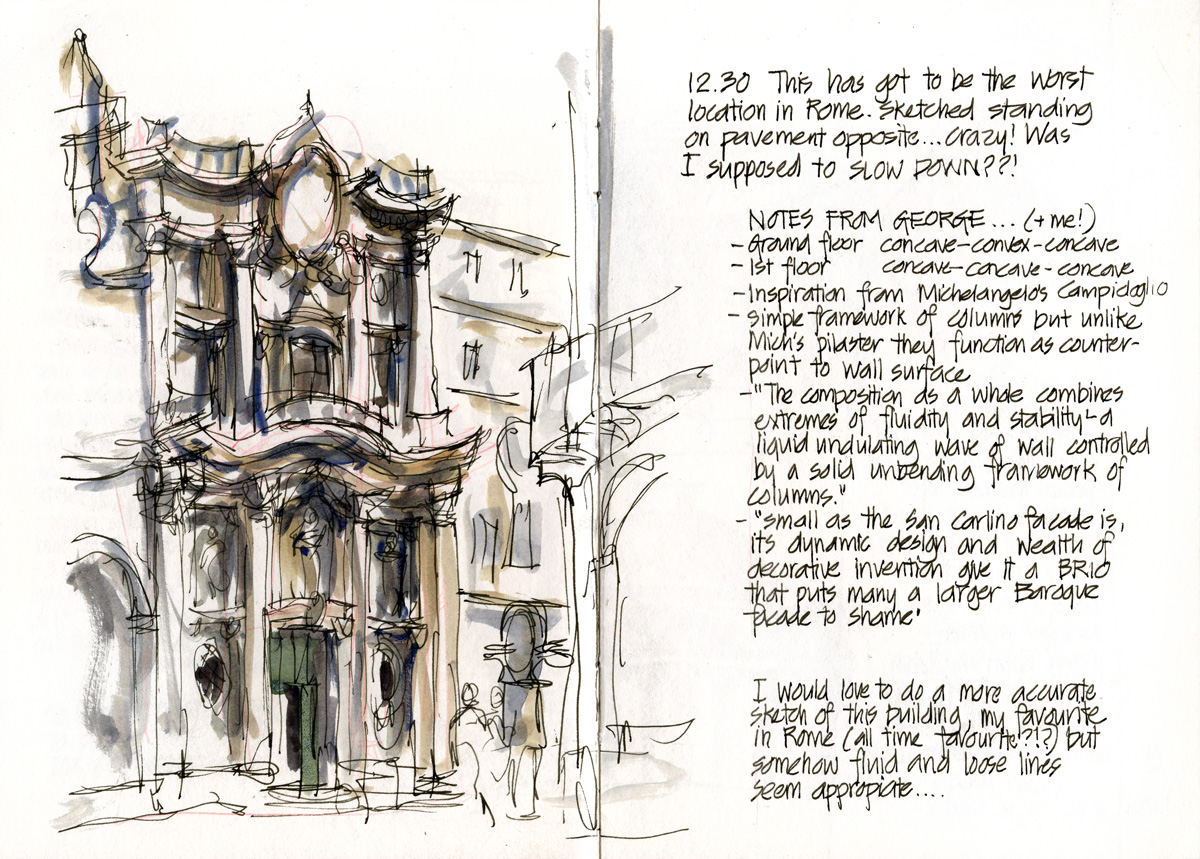 12.30 This has got to be the worst
location in Rome. Sketched standing
on pavement opposite... crazy! Was
I supposed to SLOW DOWN??!
NOTES FROM GEORGE... (+ me!)
- Ground floor concave-convex-concave
- 1st floor concave-concave-concave
- Inspiration from Michelangelo's Campidoglio
- simple framework of columns but unlike
Mich's pilaster they function as counter-
point to wall surface
- "The composition as a whole combines
extremes of fluidity and stability - a
liquid undulating wave of wall controlled
by a solid unbending framework of
columns."
- "small as the San Carlino facade is,
its dynamic design and wealth of
decorative invention give it a BRIO
that puts many a larger Baroque
facade to shame'
I would love to do a more accurate
sketch of this building, my favourite
in Rome (all time favourite?!?) but
somehow fluid and loose lines
seem appropiate....